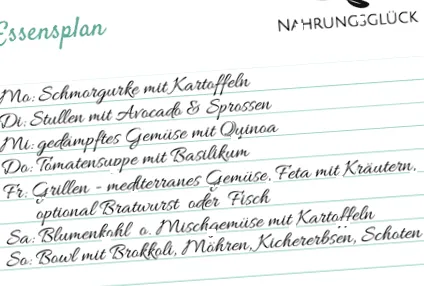 Essensplan
NAHRUNGSGLÜCK
Mo: Schmorgurke mit Kartoffeln
Di: Stullen mit Avocado & Sprossen
Mi: gedämpftes Gemüse mit Quinoa
Do: Tomatensuppe mit Basilikum
Fr: Grillen - mediterranes Gemüse, Feta mit Kräutern,
optional Bratwurst oder Fisch
Sa: Blumenkohl o. Mischgemüse mit Kartoffeln
So: Bowl mit Brokkoli, Möhren, Kichererbsen, Schoten